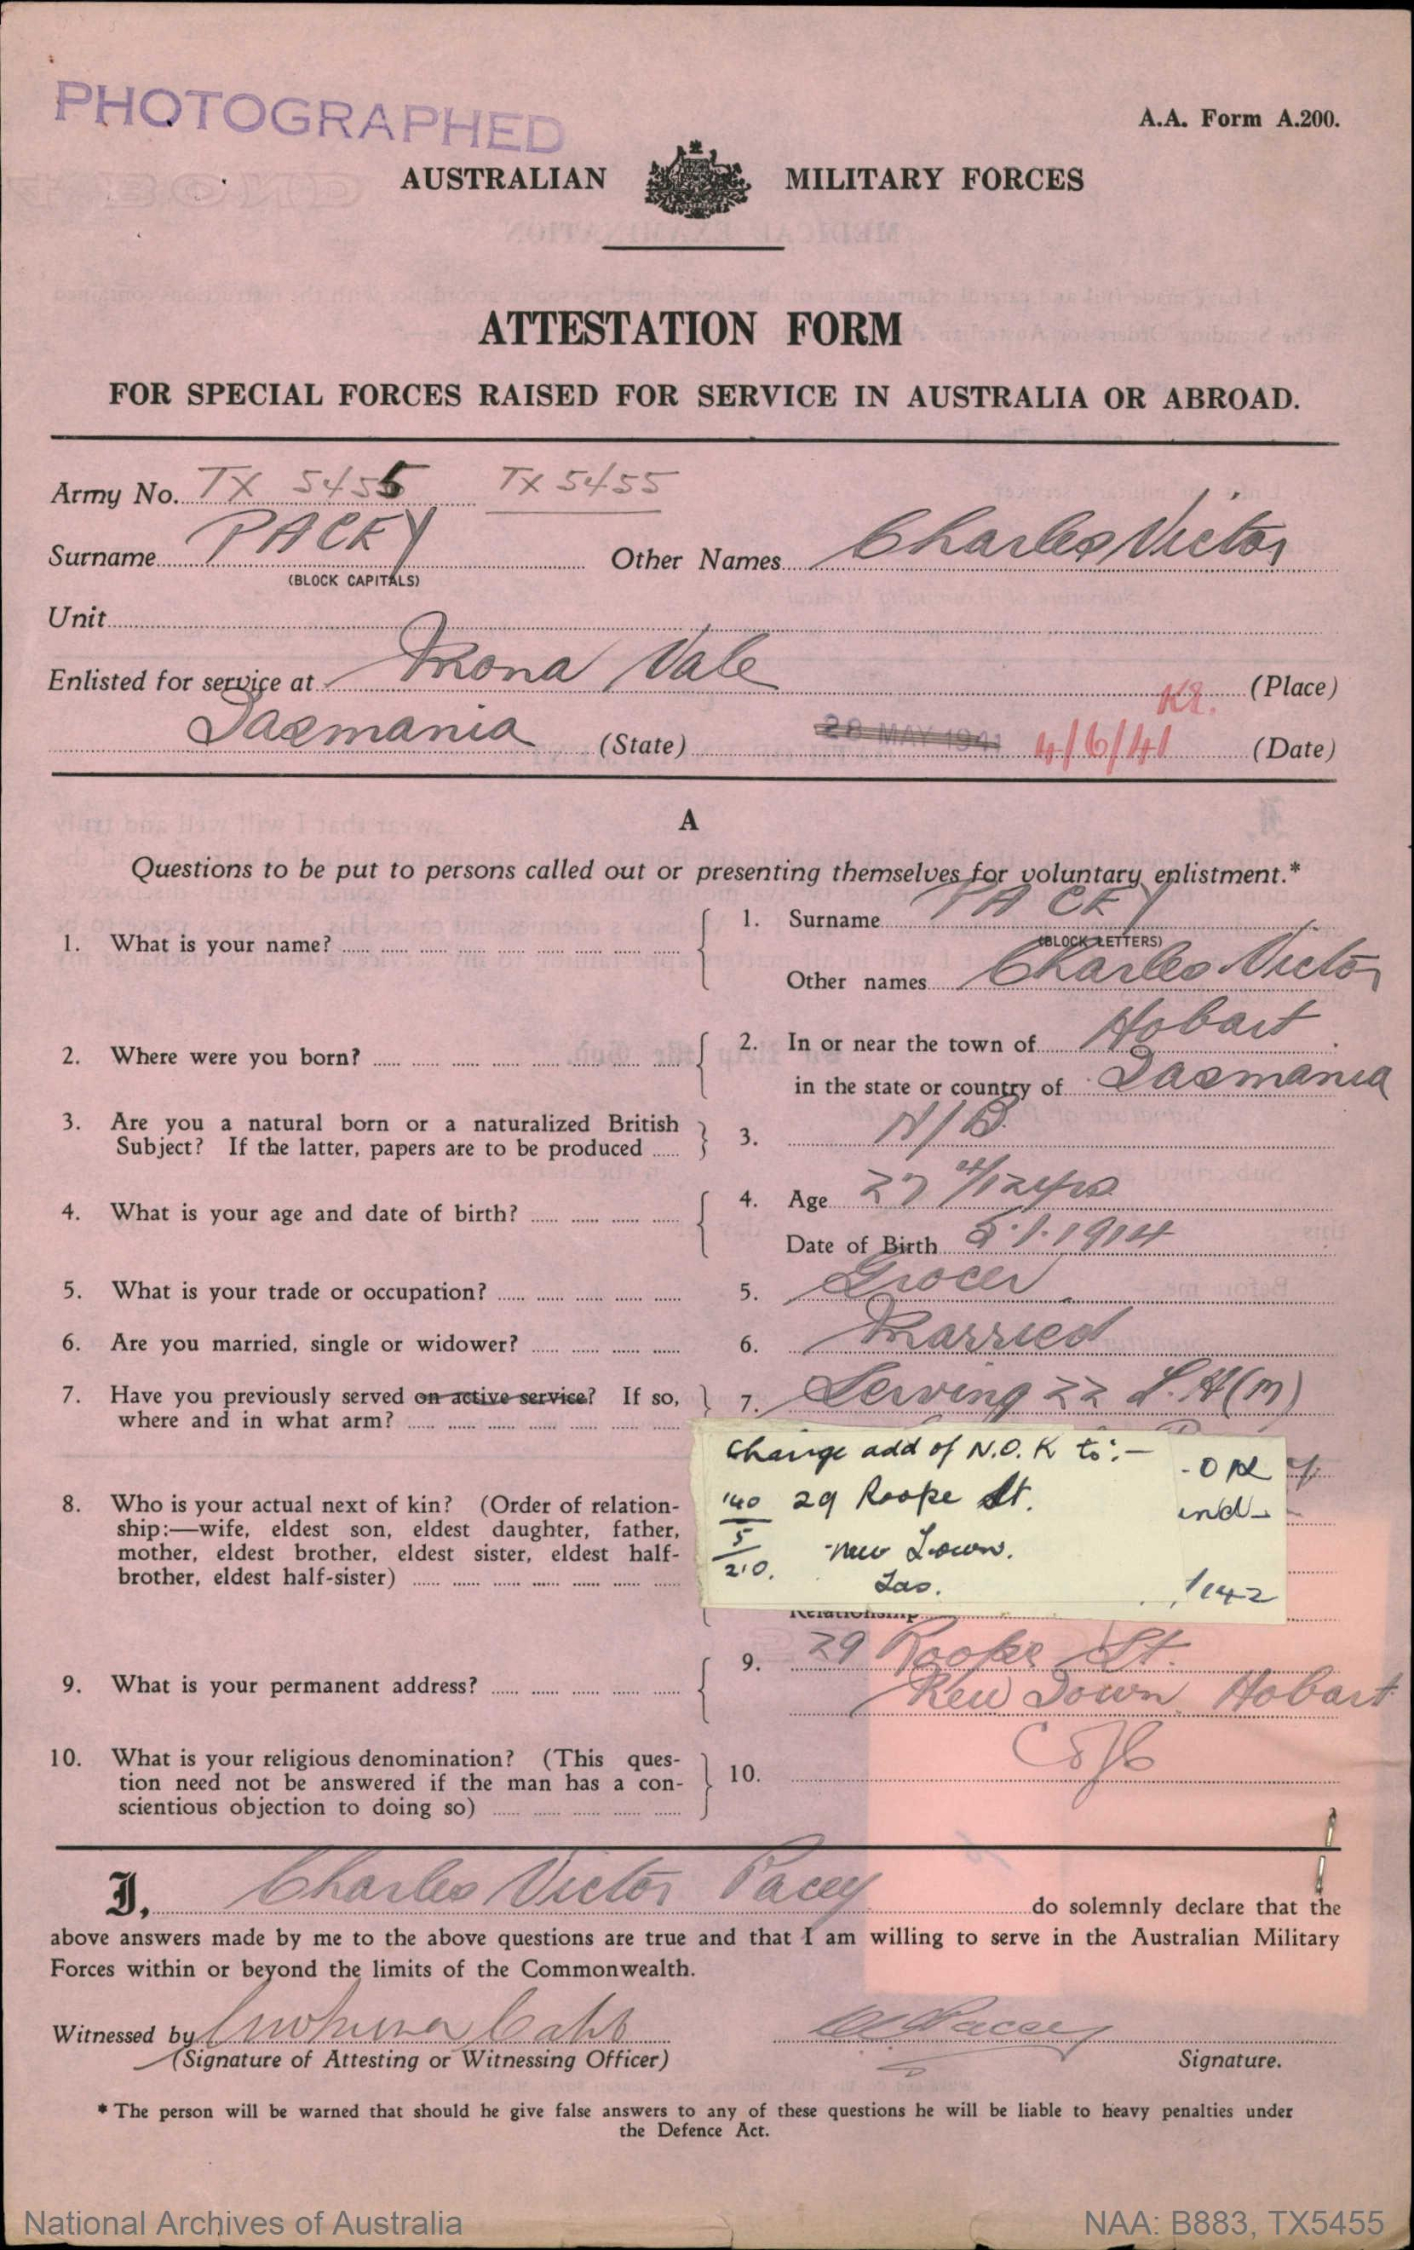 PHOTOGRAPHED
A.A. Form A.200.
AUSTRALIAN MILITARY FORCES
ATTESTATION FORM
FOR SPECIAL FORCES RAISED FOR SERVICE IN AUSTRALIA OR ABROAD.
Army No. TX 5455 TX 5455
Surname PACEY Other Names Charles Victor
(BLOCK CAPITALS)
Unit
Enlisted for service at Mona Vale (Place)
Tasmania (State) 28 MAY 1941 4/6/41 (Date)
A
Questions to be put to persons called out or presenting themselves for voluntary enlistment.*
1. What is your name? 1. Surname PACEY
(BLOCK LETTERS)
Other names Charles Victor
2. Where were you born? 2. In or near the town of Hobart
in the state or country of Tasmania
3. Are you a natural born or a naturalized British
Subject? If the latter, papers are to be produced 3. N/B.
4. What is your age and date of birth? 4. Age 27 4/12 yrs
Date of Birth 5.1.1914
5. What is your trade or occupation? 5. Grocer
6. Are you married, single or widower? 6. Married
7. Have you previously served on active service? If so,
where and in what arm? 7. Serving 22 L.H(M)
Change add of N.O.K to:-
140 29 Roope St.
5
210. New Town.
Tas.
1/42
8. Who is your actual next of kin? (Order of relation-
ship:—wife, eldest son, eldest daughter, father,
mother, eldest brother, eldest sister, eldest half-
brother, eldest half-sister)
Relationship
9. What is your permanent address? 9. 29 Roope St.
New Town Hobart
10. What is your religious denomination? (This ques-
tion need not be answered if the man has a con-
scientious objection to doing so) 10. C of E
I, Charles Victor Pacey do solemnly declare that the
above answers made by me to the above questions are true and that I am willing to serve in the Australian Military
Forces within or beyond the limits of the Commonwealth.
Witnessed by C Pacey
(Signature of Attesting or Witnessing Officer) Signature.
* The person will be warned that should he give false answers to any of these questions he will be liable to heavy penalties under
the Defence Act.
National Archives of Australia NAA: B883, TX5455